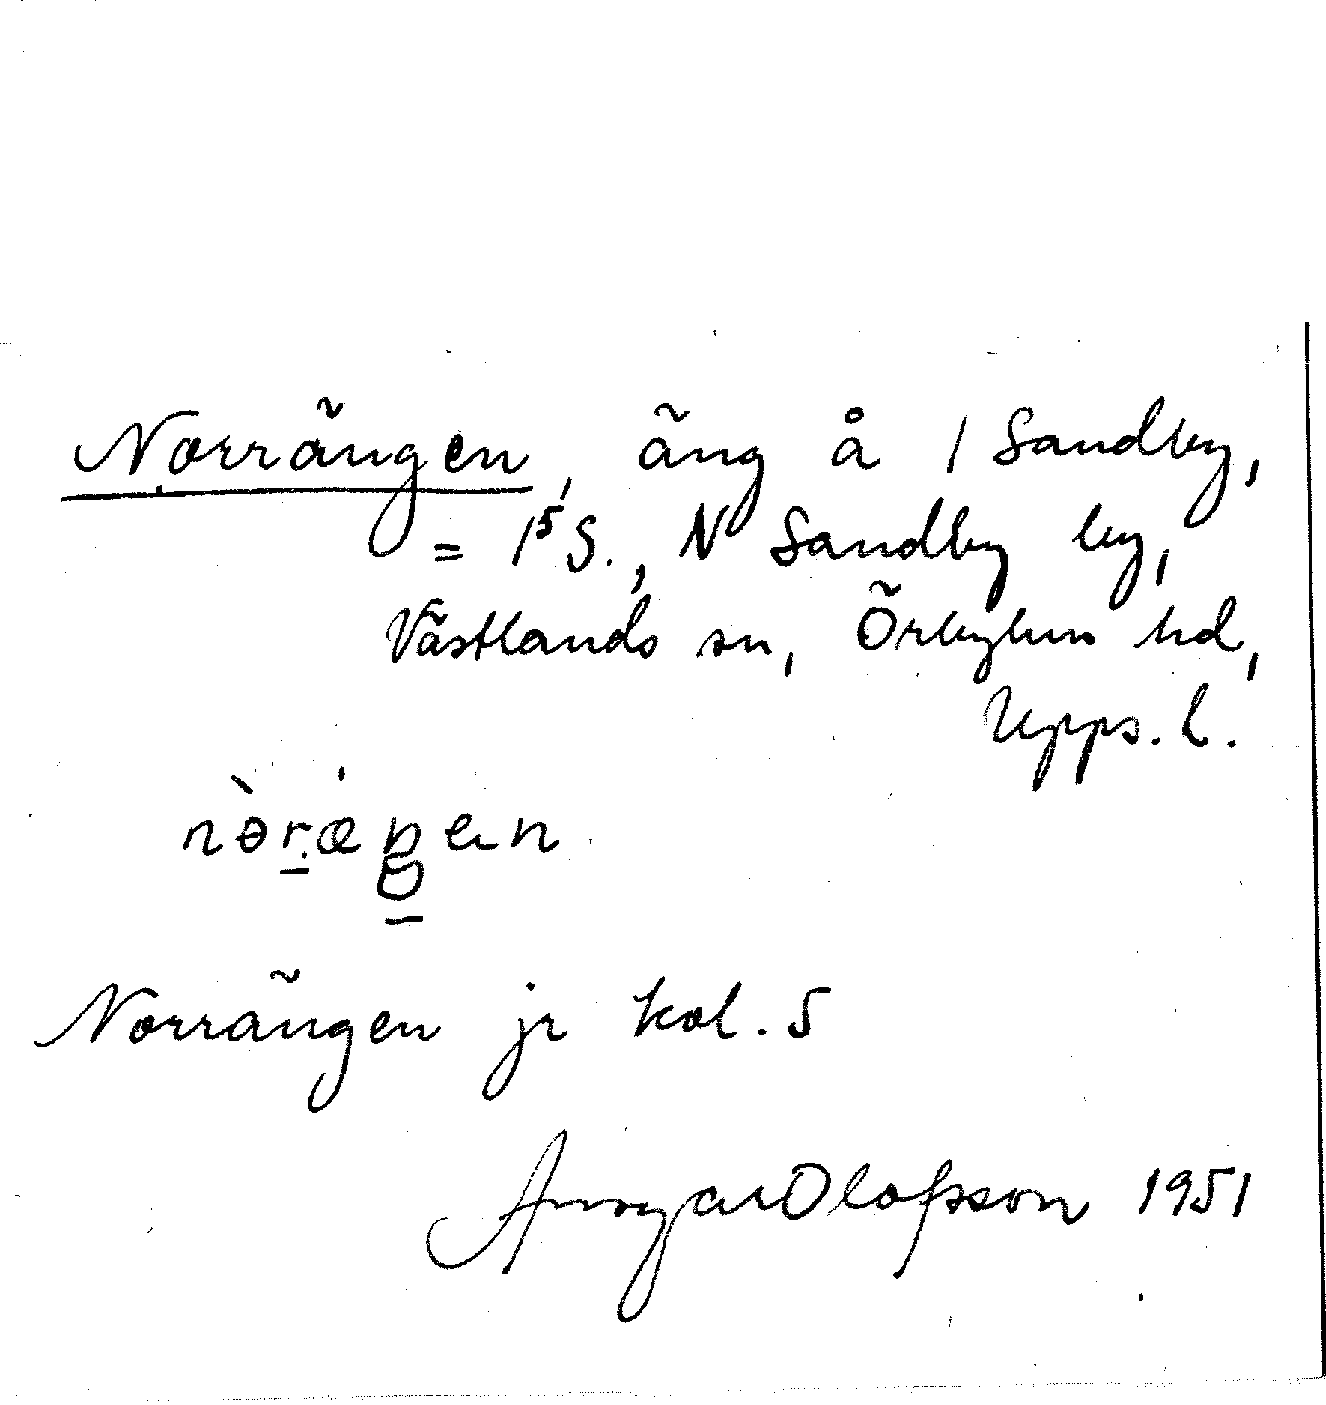 Norrängen, äng å 1 Sandby,
= 1⁵ S., N Sandby by,
Västlands sn, Örbyhus hd,
Upps. l.
Norrängen jr kol. 5
Ansgar Olofsson 1951